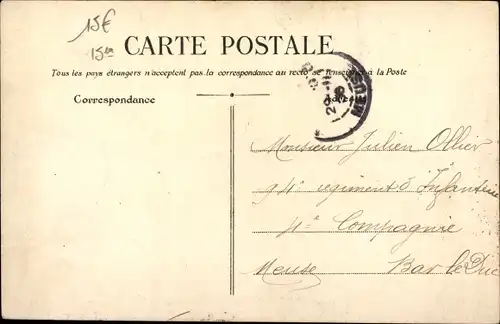 15€
15
CARTE POSTALE
Tous les pays étrangers n'acceptent pas la correspondance au recto se renseigner à la Poste
Correspondance
Monsieur Julien Ollier
94e regiment d'Infanterie
4e Compagnie
Meuse Bar le Duc